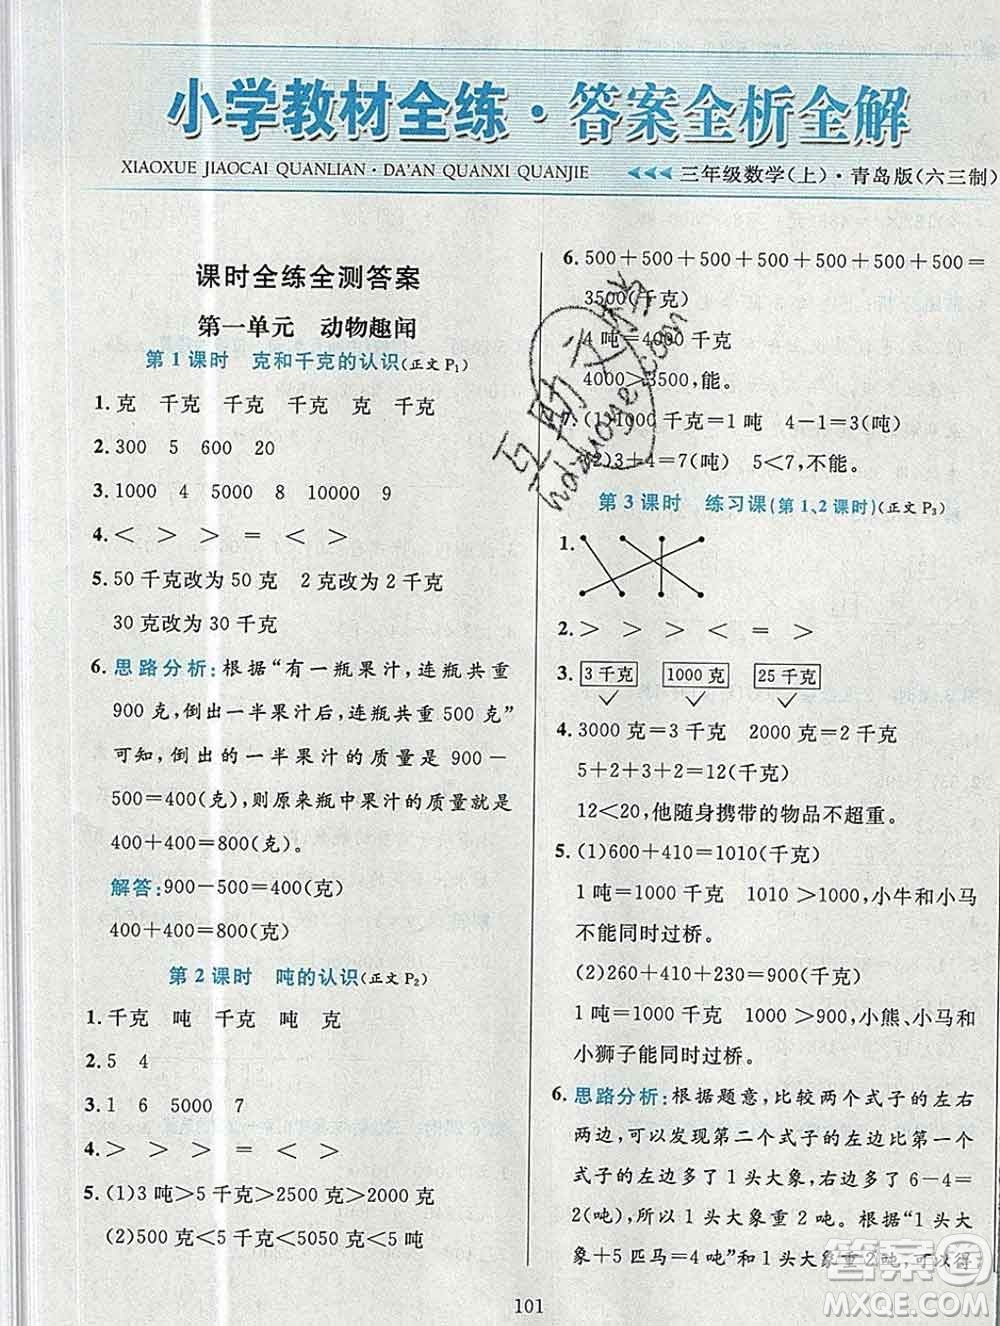 小学教材全练·答案全析全解
XIAOXUE JIAOCAI QUANLIAN·DA'AN QUANXI QUANJIE
三年级数学(上)·青岛版(六三制)
课时全练全测答案
第一单元 动物趣闻
第1课时 克和千克的认识(正文P₁)
1.克 千克 千克 千克 克 千克
2.300 5 600 20
3.1000 4 5000 8 10000 9
4.< < > = > >
5.50千克改为50克 2克改为2千克
30克改为30千克
6.思路分析:根据“有一瓶果汁,连瓶共重
900克,倒出一半果汁后,连瓶共重500克”
可知,倒出的一半果汁的质量是900－
500=400(克),则原来瓶中果汁的质量就是
400+400=800(克)。
解答:900－500=400(克)
400+400=800(克)
第2课时 吨的认识(正文P₂)
1.千克 吨 千克 吨 克
2.5 4
3.1 6 5000 7
4.> > > > = <
5.(1)3吨>5千克>2500克>2000克
(2)50克<5千克<5050克<5吨
6.500+500+500+500+500+500+500=
3500(千克)
4吨=4000千克
4000>3500,能。
7.(1)1000千克=1吨 4－1=3(吨)
(2)3+4=7(吨) 5<7,不能。
第3课时 练习课(第1、2课时)(正文P₃)
1.
2.> > > < = >
3.3千克 1000克 25千克
4.3000克=3千克 2000克=2千克
5+2+3+2=12(千克)
12<20,他随身携带的物品不超重。
5.(1)600+410=1010(千克)
1吨=1000千克 1010>1000,小牛和小马
不能同时过桥。
(2)260+410+230=900(千克)
1吨=1000千克 1000>900,小熊、小马和
小狮子能同时过桥。
6.思路分析:根据题意,比较两个式子的左右
两边,可以发现第二个式子的左边比第一个
式子的左边多了1头大象,右边多了6－4=
2(吨),所以1头大象重2吨。根据“1头大
象+5匹马=4吨”和1头大象重2吨,可以得:
101
互助文档
hdzuoye.com
答案圈
MXQE.COM